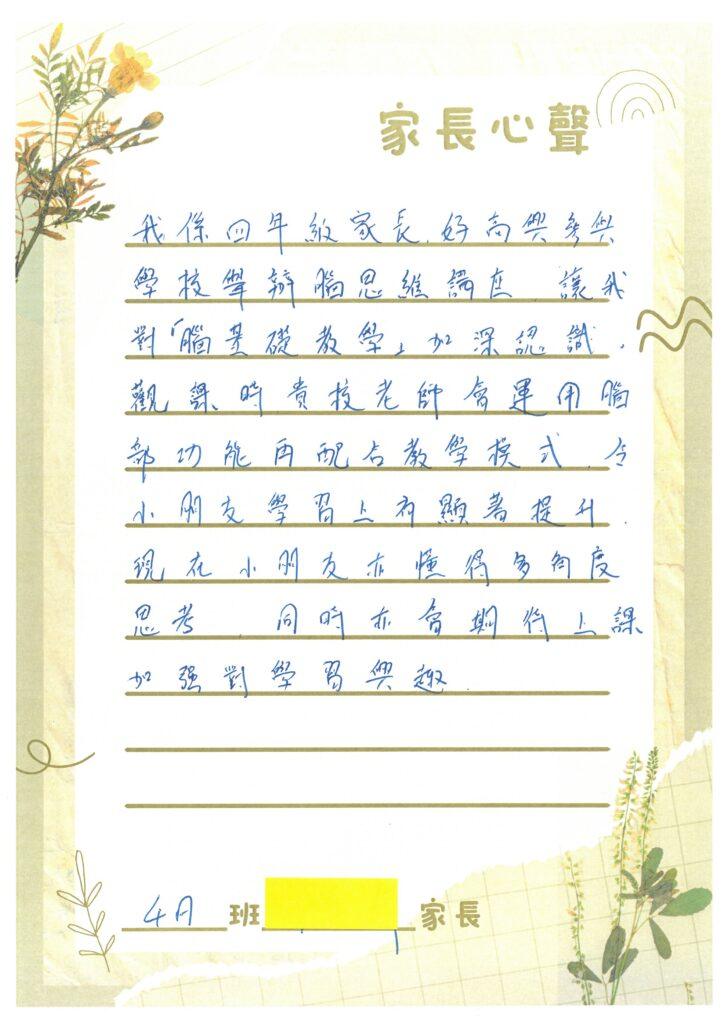 家長心聲
我係四年級家長,好高興參與
學校舉辦腦思維講座,讓我
對「腦基礎教學」加深認識,
觀課時貴校老師會運用腦
部功能再配合教學模式,令
小朋友學習上有顯著提升.
現在小朋友亦懂得多角度
思考 同時亦會期待上課
加強對學習興趣.
班 家長